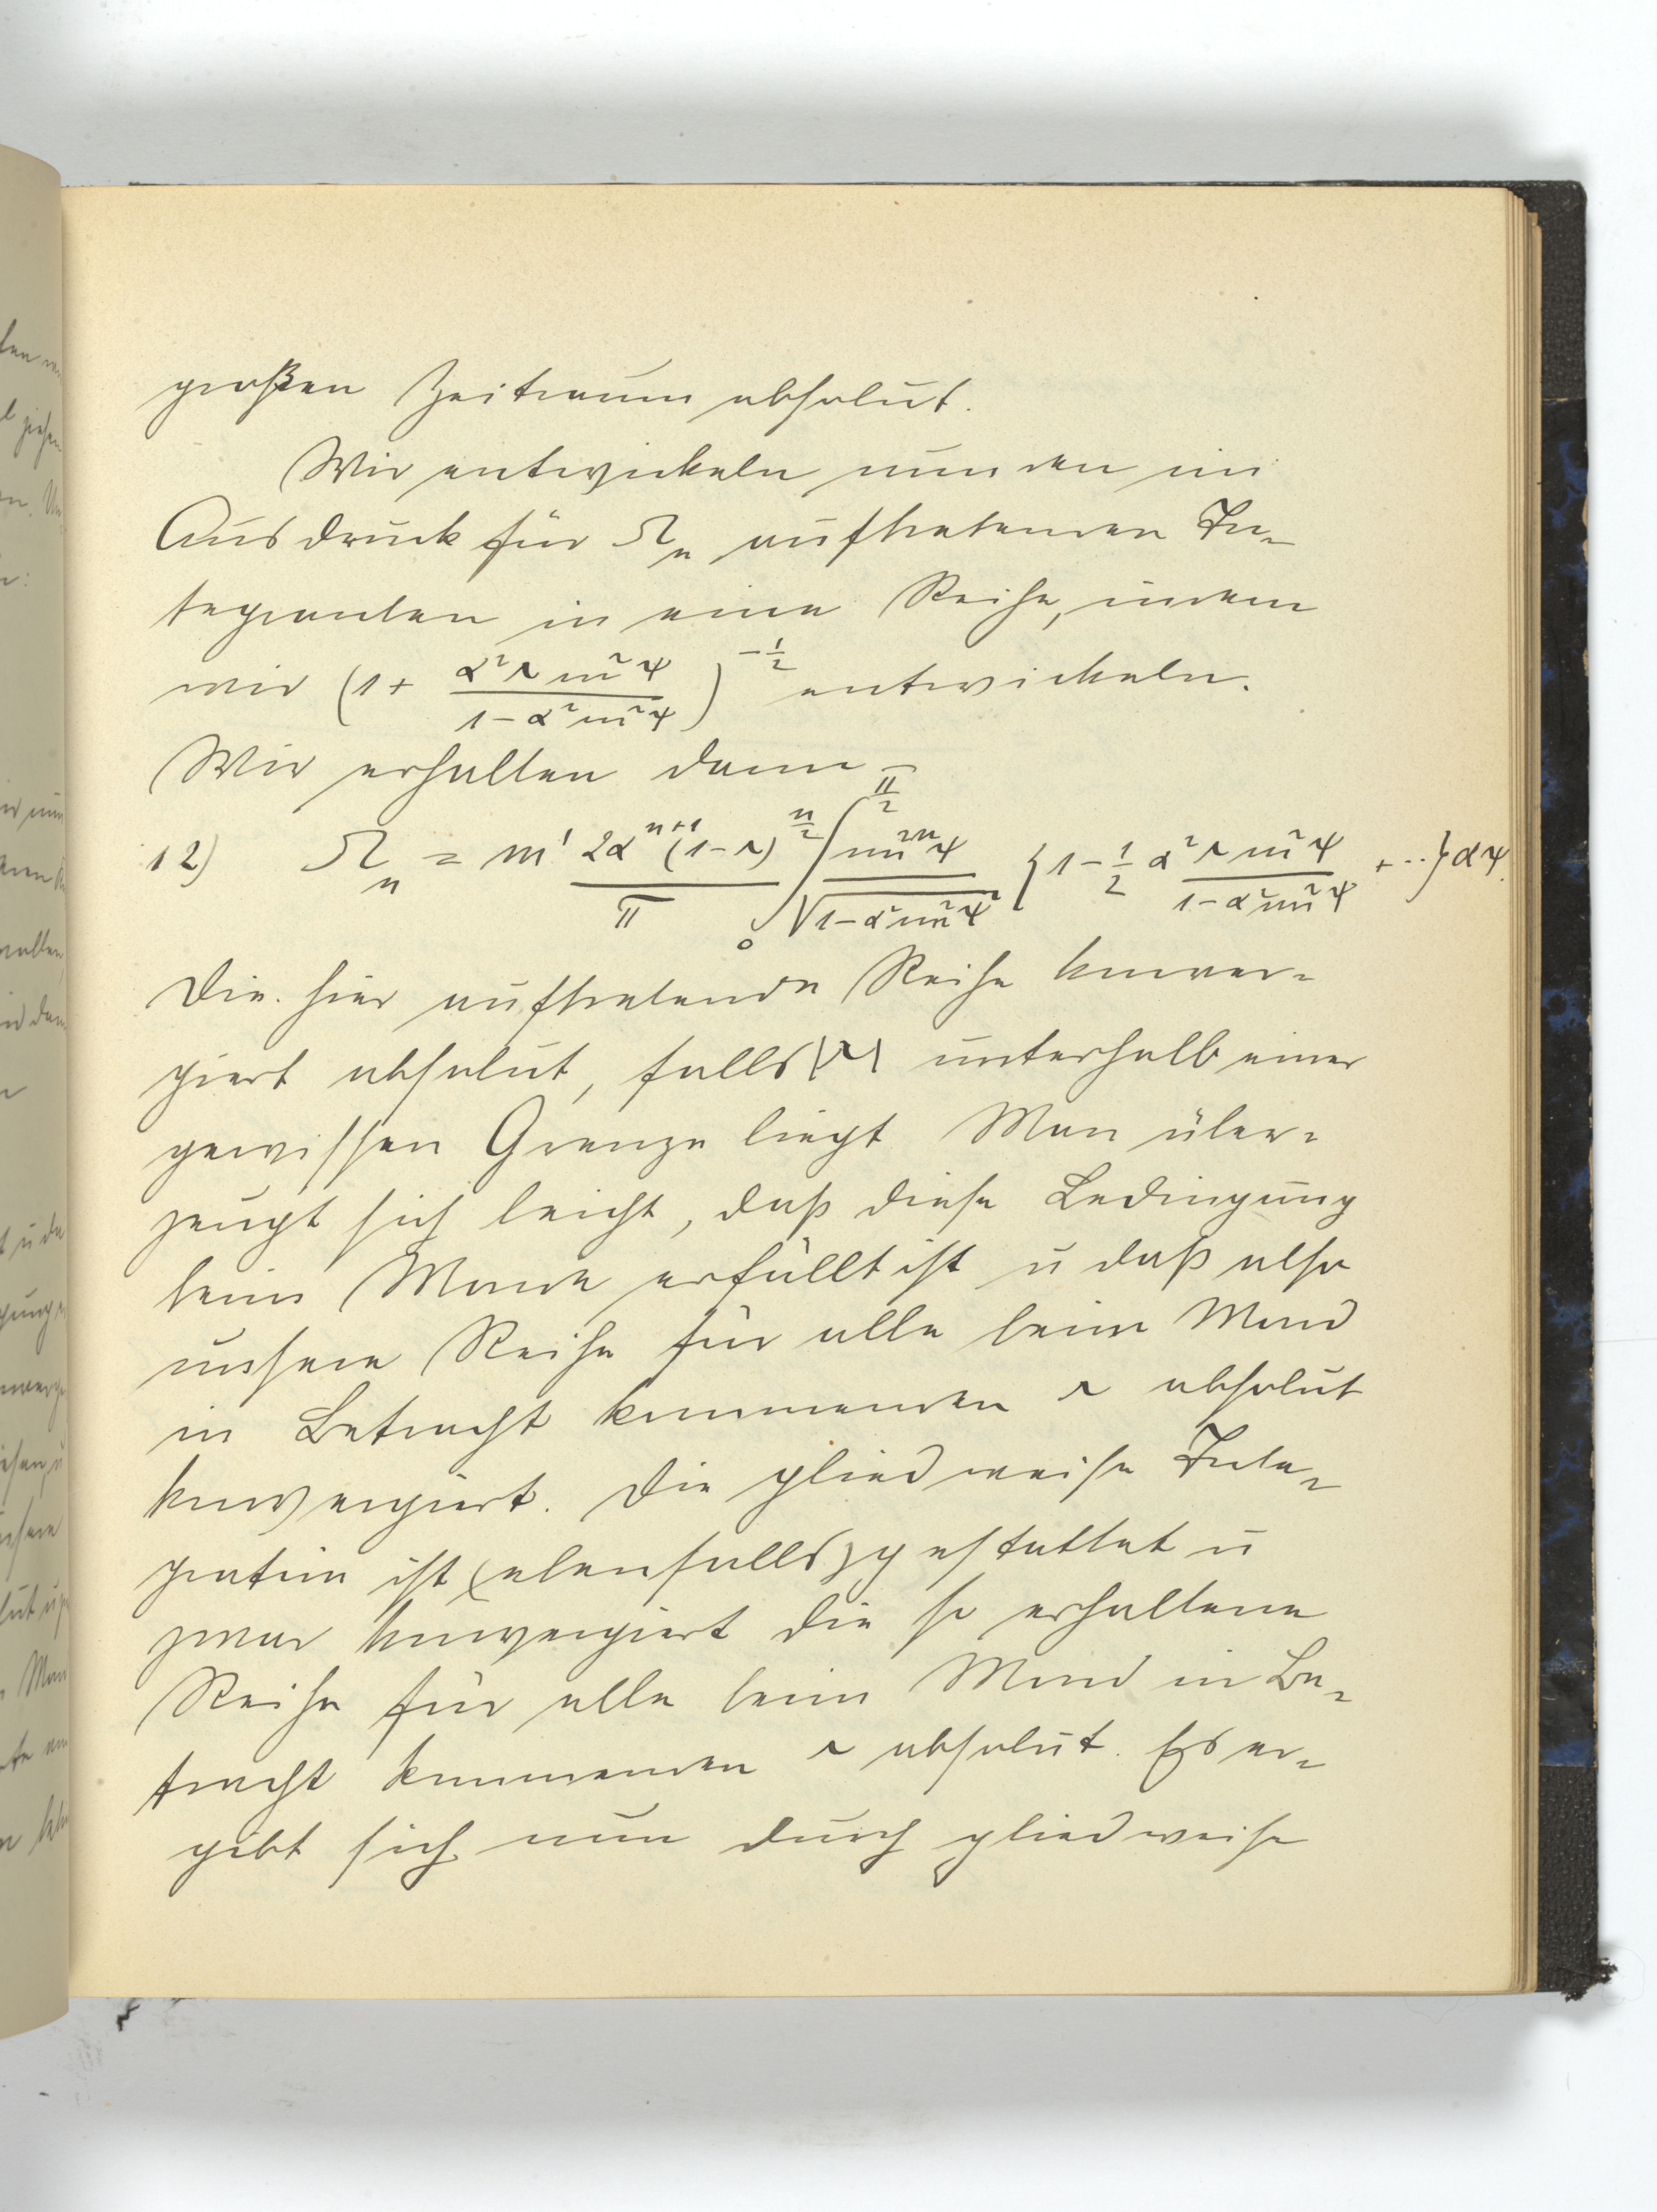 großen Zeitraum absolut.
Wir entwickeln nun den im
Ausdruck für Ω_n auftretenden In-
tegranten in eine Reihe, indem
wir (1 + α²ν sin²ψ / 1 − α² sin²ψ)^(−1/2) entwickeln.
Wir erhalten dann
12) Ω_n = m' 2α^(n+1) (1−ν)^(n/2) / π ∫_0^(π/2) sin^(2n)ψ / √(1−α² sin²ψ) {1 − 1/2 α²ν sin²ψ / 1−α² sin²ψ + ··} dψ.
Die hier auftretende Reihe konver-
giert absolut, falls |ν| unterhalb einer
gewissen Grenze liegt Man über-
zeugt sich leicht, daß diese Bedingung
beim Monde erfüllt ist u daß also
unsere Reihe für alle beim Mond
in Betracht kommenden ν absolut
konvergiert. Die gliedweise Inte-
gration ist (ebenfalls) gestattet u
zwar konvergiert die so erhaltene
Reihe für alle beim Mond in Be-
tracht kommenden ν absolut. Es er-
gibt sich nun durch gliedweise